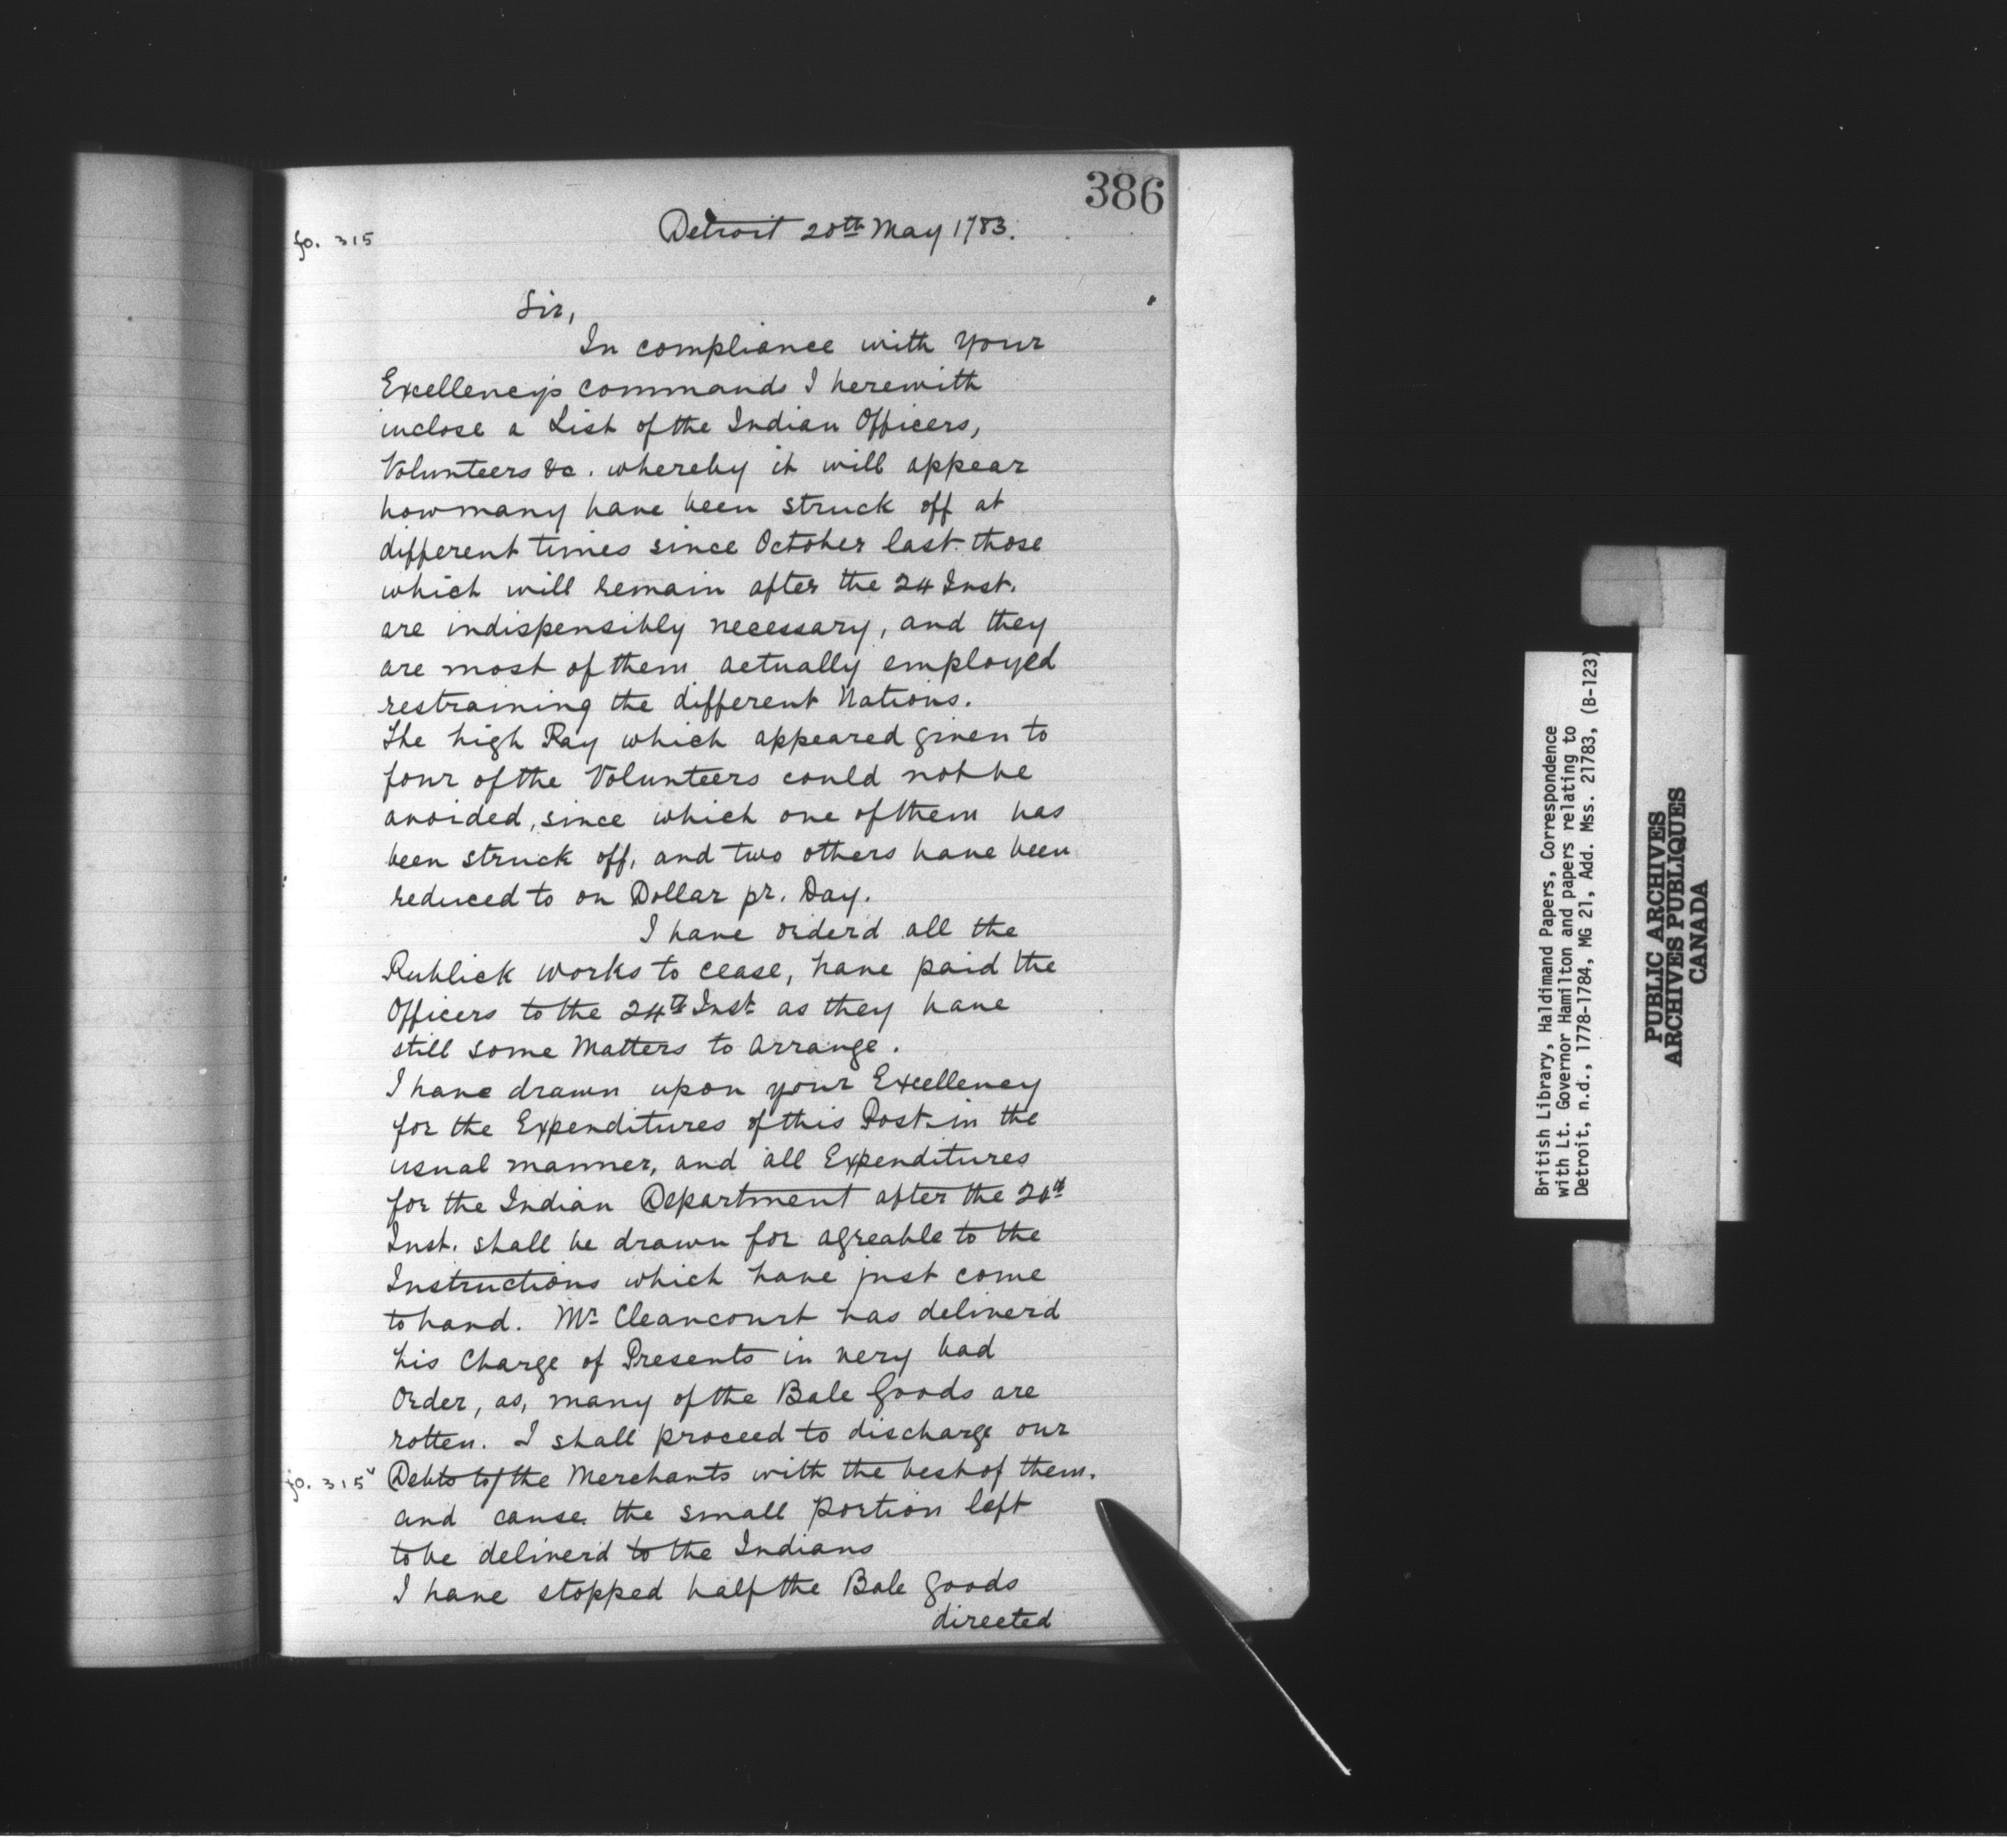 386
fo. 315
Detroit 20th May 1783.
Sir,
In compliance with your
Excellency's commands I herewith
inclose a List of the Indian Officers,
Volunteers &c. whereby it will appear
howmany have been struck off at
different times since October last. those
which will remain after the 24 Inst.
are indispensibly necessary, and they
are most of them actually employed
restraining the different Nations.
The high Pay which appeared given to
four of the Volunteers could not be
avoided, since which one of them has
been struck off, and two others have been
reduced to on Dollar pr. Day.
I have orderd all the
Publick works to cease, have paid the
Officers to the 24th Inst as they have
still some Matters to arrange.
I have drawn upon your Excellency
for the Expenditures of this Post in the
usual manner, and all Expenditures
for the Indian Department after the 24th
Inst. shall be drawn for agreable to the
Instructions which have just come
to hand. Mr Cleancourt has deliverd
his Charge of Presents in very bad
Order, as, many of the Bale Goods are
rotten. I shall proceed to discharge our
fo. 315v Debts to the Merchants with the best of them.
and cause the small portion left
to be deliverd to the Indians
I have stopped half the Bale Goods
directed
British Library, Haldimand Papers, Correspondence
with Lt. Governor Hamilton and papers relating to
Detroit, n.d., 1778-1784, MG 21, Add. Mss. 21783, (B-123)
PUBLIC ARCHIVES
ARCHIVES PUBLIQUES
CANADA